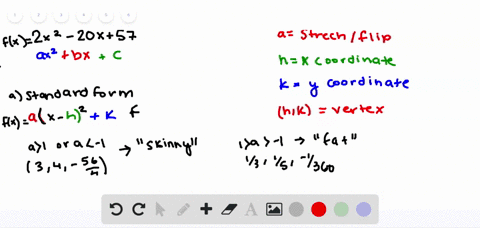 f(x)=2x² -20x+57
ax² + bx + c
a) Standard form
f(x)=a(x-h)² + k f
a>1 or a<-1 → "skinny"
(3, 4, -56/4)
a= Strech/flip
h= x coordinate
k= y coordinate
(h,k) = vertex
1>a>-1 → "fat"
1/3, 1/5, -1/360